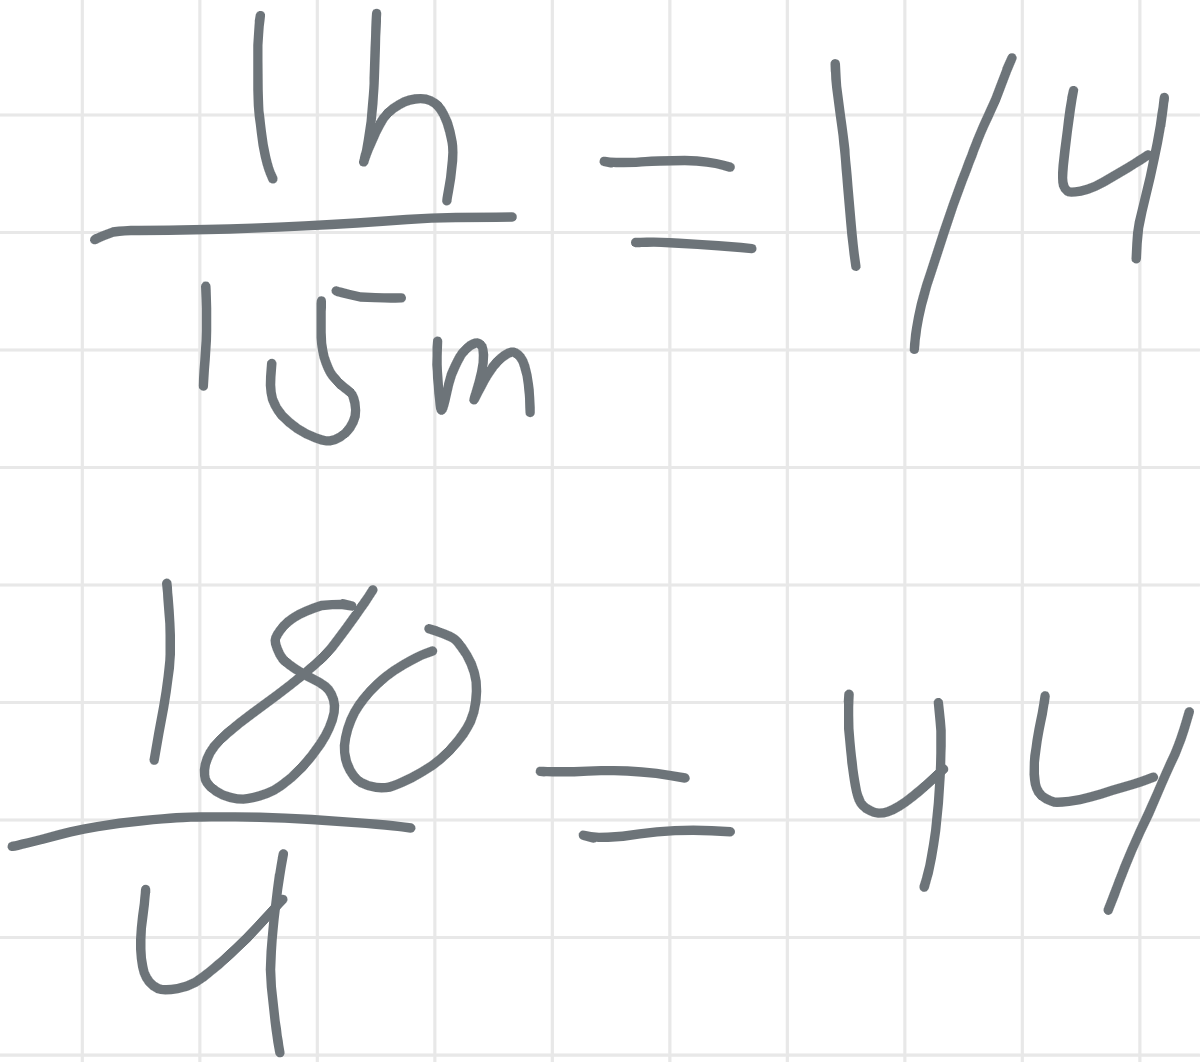 1h
15m
= 1/4
180
4
= 44